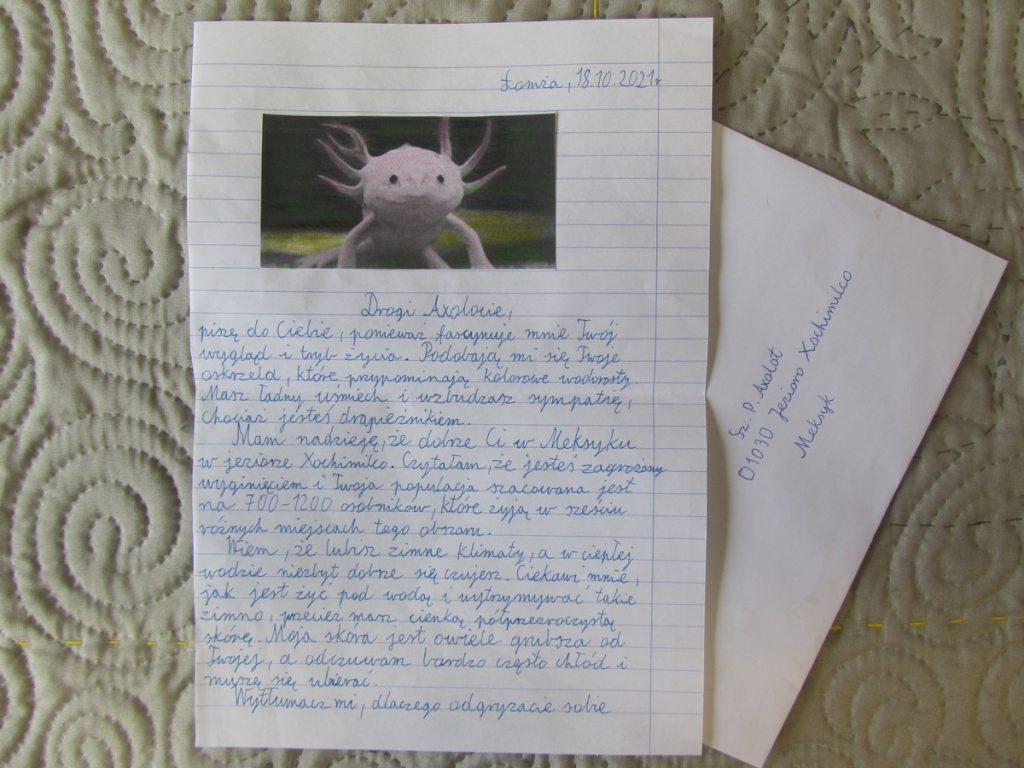 Łomża, 18.10.2021r
Drogi Axolocie,
piszę do Ciebie, ponieważ fascynuje mnie Twój
wygląd i tryb życia. Podobają mi się Twoje
oskrzela, które przypominają kolorowe wodorosty.
Masz ładny uśmiech i wzbudzasz sympatię,
chociaż jesteś drapieżnikiem.
Mam nadzieję, że dobrze Ci w Meksyku
w jeziorze Xochimilco. Czytałam, że jesteś zagrożony
wyginięciem i Twoja populacja szacowana jest
na 700-1200 osobników, które żyją w sześciu
różnych miejscach tego obszaru.
Wiem, że lubisz zimne klimaty, a w ciepłej
wodzie niezbyt dobrze się czujesz. Ciekawi mnie,
jak jest żyć pod wodą i wytrzymywać takie
zimno, przecież masz cienką półprzezroczystą
skórę. Moja skóra jest o wiele grubsza od
Twojej, a odczuwam bardzo często chłód i
muszę się ubierać.
Wytłumacz mi, dlaczego odgryzacie sobie
Sz. P. Axolot
01030 Jezioro Xochimilco
Meksyk